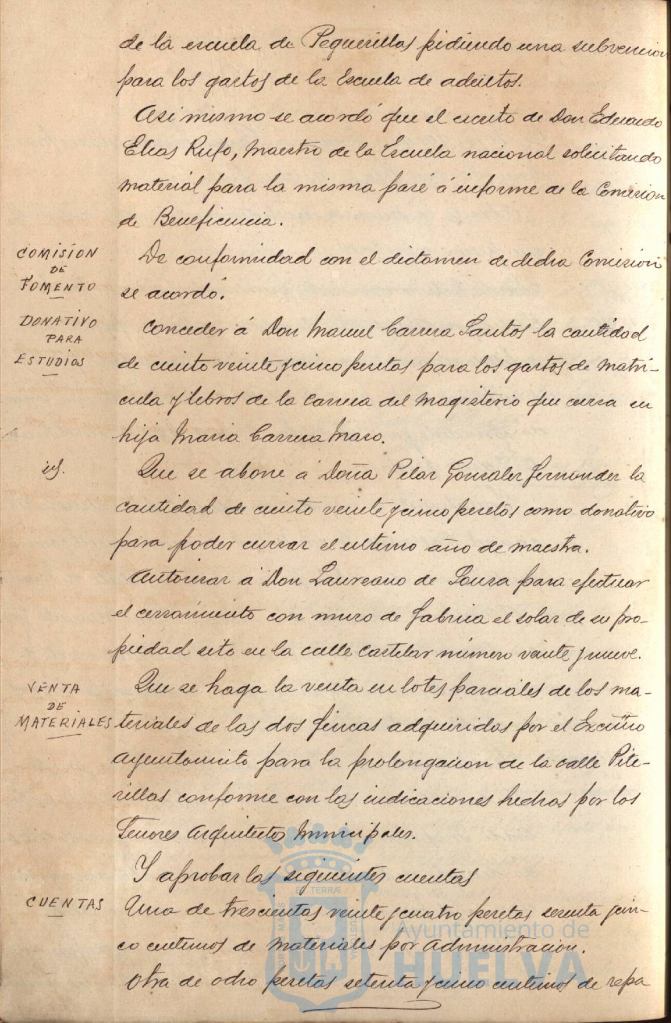 de la escuela de Peguerillas pidiendo una subvencion
para los gastos de la Escuela de adultos.
Asi mismo se acordó que el escrito de Don Eduardo
Elias Rufo, Maestro de la Escuela nacional solicitando
material para la misma pase á informe de la Comision
de Beneficencia.
COMISION
DE
FOMENTO
De conformidad con el dictamen de dicha Comision
se acordó.
DONATIVO
PARA
ESTUDIOS
Conceder á Don Manuel Carrera Santos la cantidad
de ciento veinte y cinco pesetas para los gastos de matri-
cula y libros de la carrera del Magisterio que cursa su
hija Maria Carrera Maso.
id.
Que se abone á Doña Pilar Gonzalez Fernandez la
cantidad de ciento veinte y cinco pesetas como donativo
para poder cursar el ultimo año de maestra.
Autorizar á Don Laureano de Sousa para efectuar
el cerramiento con muro de fabrica el solar de su pro-
piedad sito en la calle Castelar número veinte y nueve.
VENTA
DE
MATERIALES
Que se haga la venta en lotes parciales de los ma-
teriales de las dos fincas adquiridas por el Excmo
Ayuntamiento para la prolongacion de la calle Pite-
rillas conforme con las indicaciones hechas por los
Señores Arquitectos Municipales.
Y aprobar las siguientes cuentas
CUENTAS
Una de trescientas veinte y cuatro pesetas sesenta y cin-
co centimos de materiales por Administracion.
Otra de ocho pesetas setenta y cinco centimos de repa
Ayuntamiento de
HUELVA